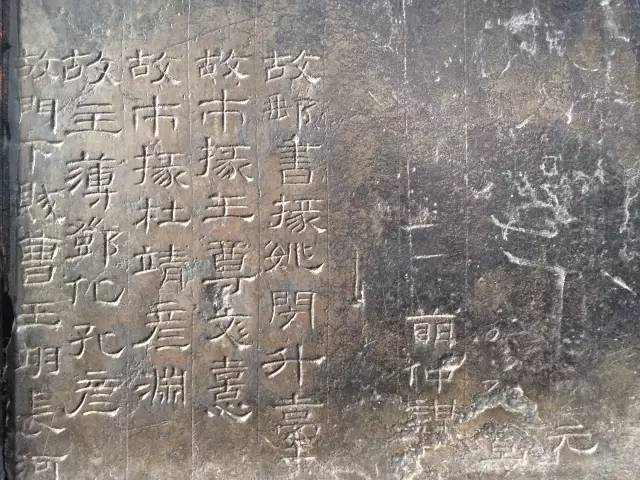 元
萌仲謀
故郵書掾姚閔升臺
故市掾王尊文憙
故市掾杜靖彥淵
故主薄鄧化孔彥
故門下賊曹王明長河